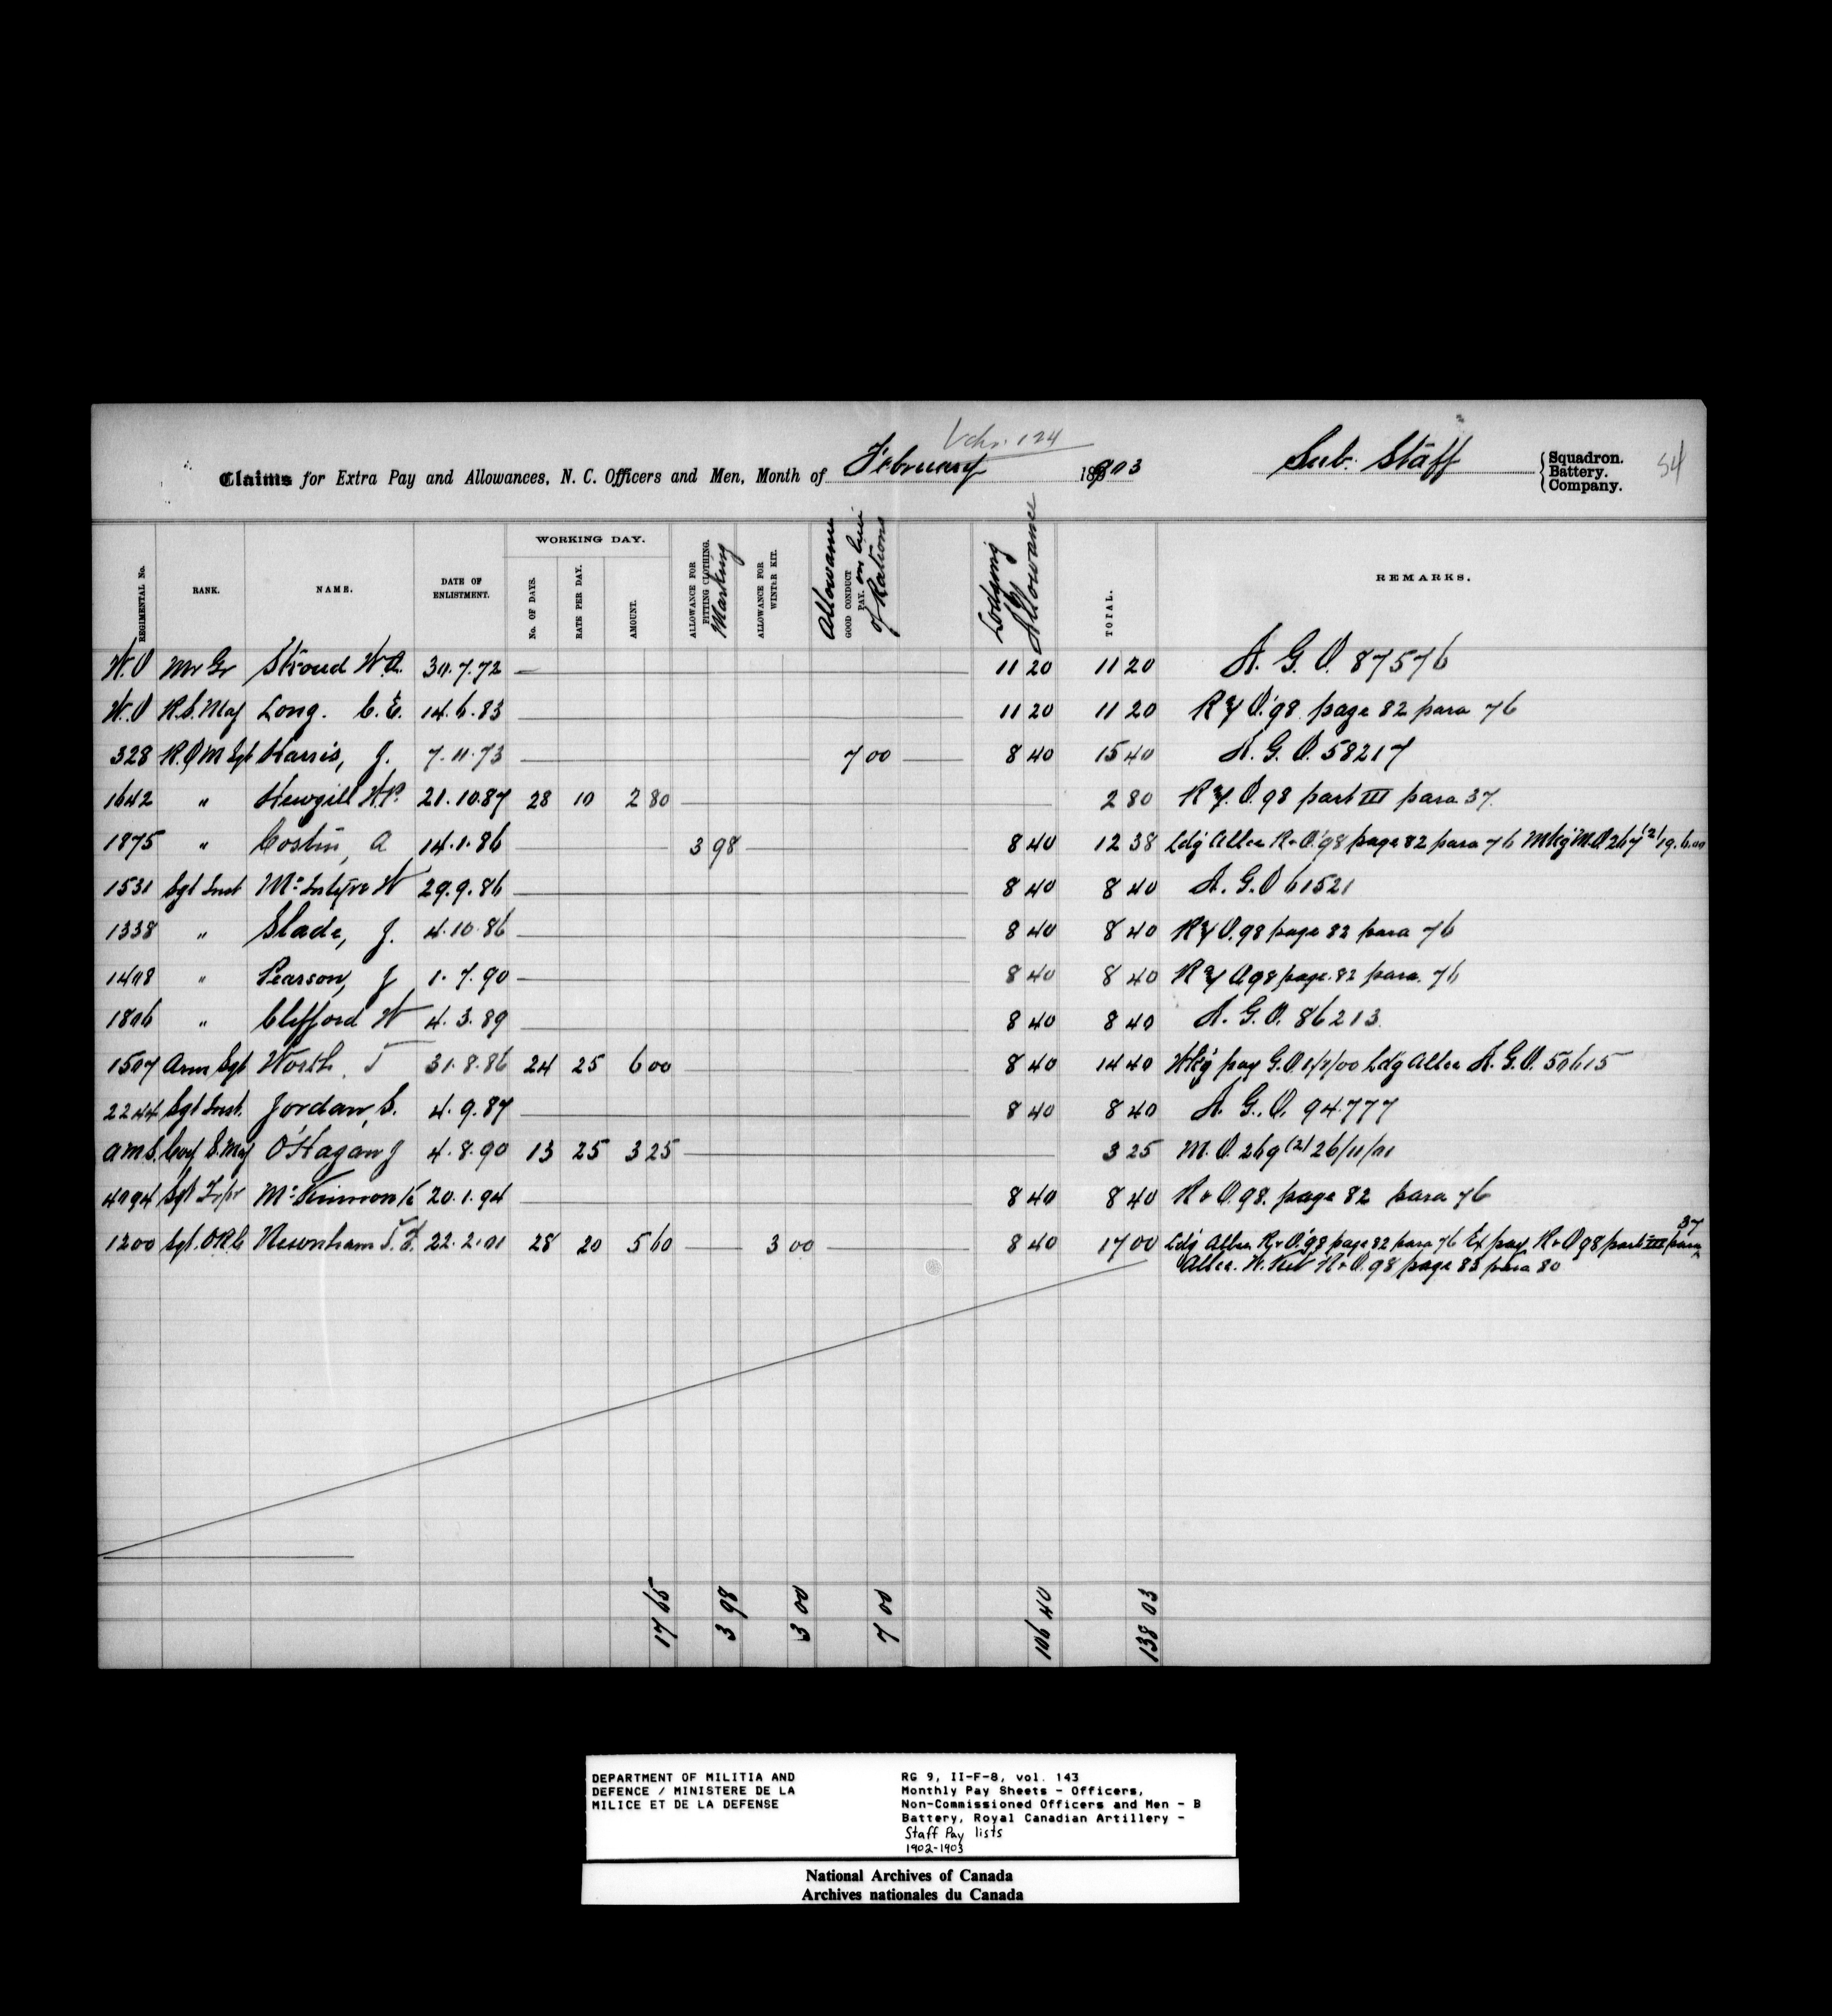 Vchr. 124
Claims for Extra Pay and Allowances, N. C. Officers and Men, Month of February 1903 Sub. Staff Squadron. Battery. Company. 54
REGIMENTAL No. RANK. NAME. DATE OF ENLISTMENT. WORKING DAY. No. OF DAYS. RATE PER DAY. AMOUNT. ALLOWANCE FOR FITTING CLOTHING. Marking ALLOWANCE FOR WINTER KIT. Allowance GOOD CONDUCT PAY. on lieu of Rations Lodging Allowance TOTAL. REMARKS.
W.O Mr Gr Stroud W.A. 30.7.72 11 20 11 20 A. G. O. 87576
W.O R.S.Maj Long. C.E. 14.6.83 11 20 11 20 R & O. 98 page 82 para 76
328 R.Q M Sgt Harris, J. 7.11.73 7 00 8 40 15 40 A. G. O. 58217
1642 " Hewgill W.P. 21.10.87 28 10 2 80 2 80 R & O. 98 part III para 37.
1875 " Costin, A 14.1.86 3 98 8 40 12 38 Ldg Allce R & O. '98 page 82 para 76 Mkg M.O 267 (2) 19.6.00
1531 Sgt Inst McIntyre W 29.9.86 8 40 8 40 A. G. O 61521
1338 " Slade, J. 4.10.86 8 40 8 40 R & O. 98 page 82 para 76
1408 " Pearson, J 1.7.90 8 40 8 40 R & O 98 page. 82 para. 76
1806 " Clifford W 4.3.89 8 40 8 40 A. G. O. 86213
1507 Arm Sgt Worth, T 31.8.86 24 25 6 00 8 40 14 40 Wkg pay G.O /00 Ldg Allce A. G. O. 50615
2244 Sgt Inst. Jordan, S. 4.9.87 8 40 8 40 A. G. O. 94777
AMS. Coy S.Maj O'Hagan J 4.8.90 13 25 3 25 3 25 M. O. 269 (2) 26/11/01
4094 Sgt Tptr McKinnon K 20.1.94 8 40 8 40 R & O. 98. page 82 para 76
1200 Sgt. ORC Newnham T. 22.2.01 28 20 5 60 3 00 8 40 17 00 Ldg Allce R & O. 98 page 82 para 76 Ex pay R & O 98 part III para 37
Allce. W. Kit R & O. 98 page 83 para 80
17 65 3 98 3 00 7 00 106 40 138 03
DEPARTMENT OF MILITIA AND
DEFENCE / MINISTERE DE LA
MILICE ET DE LA DEFENSE
RG 9, II-F-8, vol. 143
Monthly Pay Sheets - Officers,
Non-Commissioned Officers and Men - B
Battery, Royal Canadian Artillery -
Staff Pay lists
1902-1903
National Archives of Canada
Archives nationales du Canada